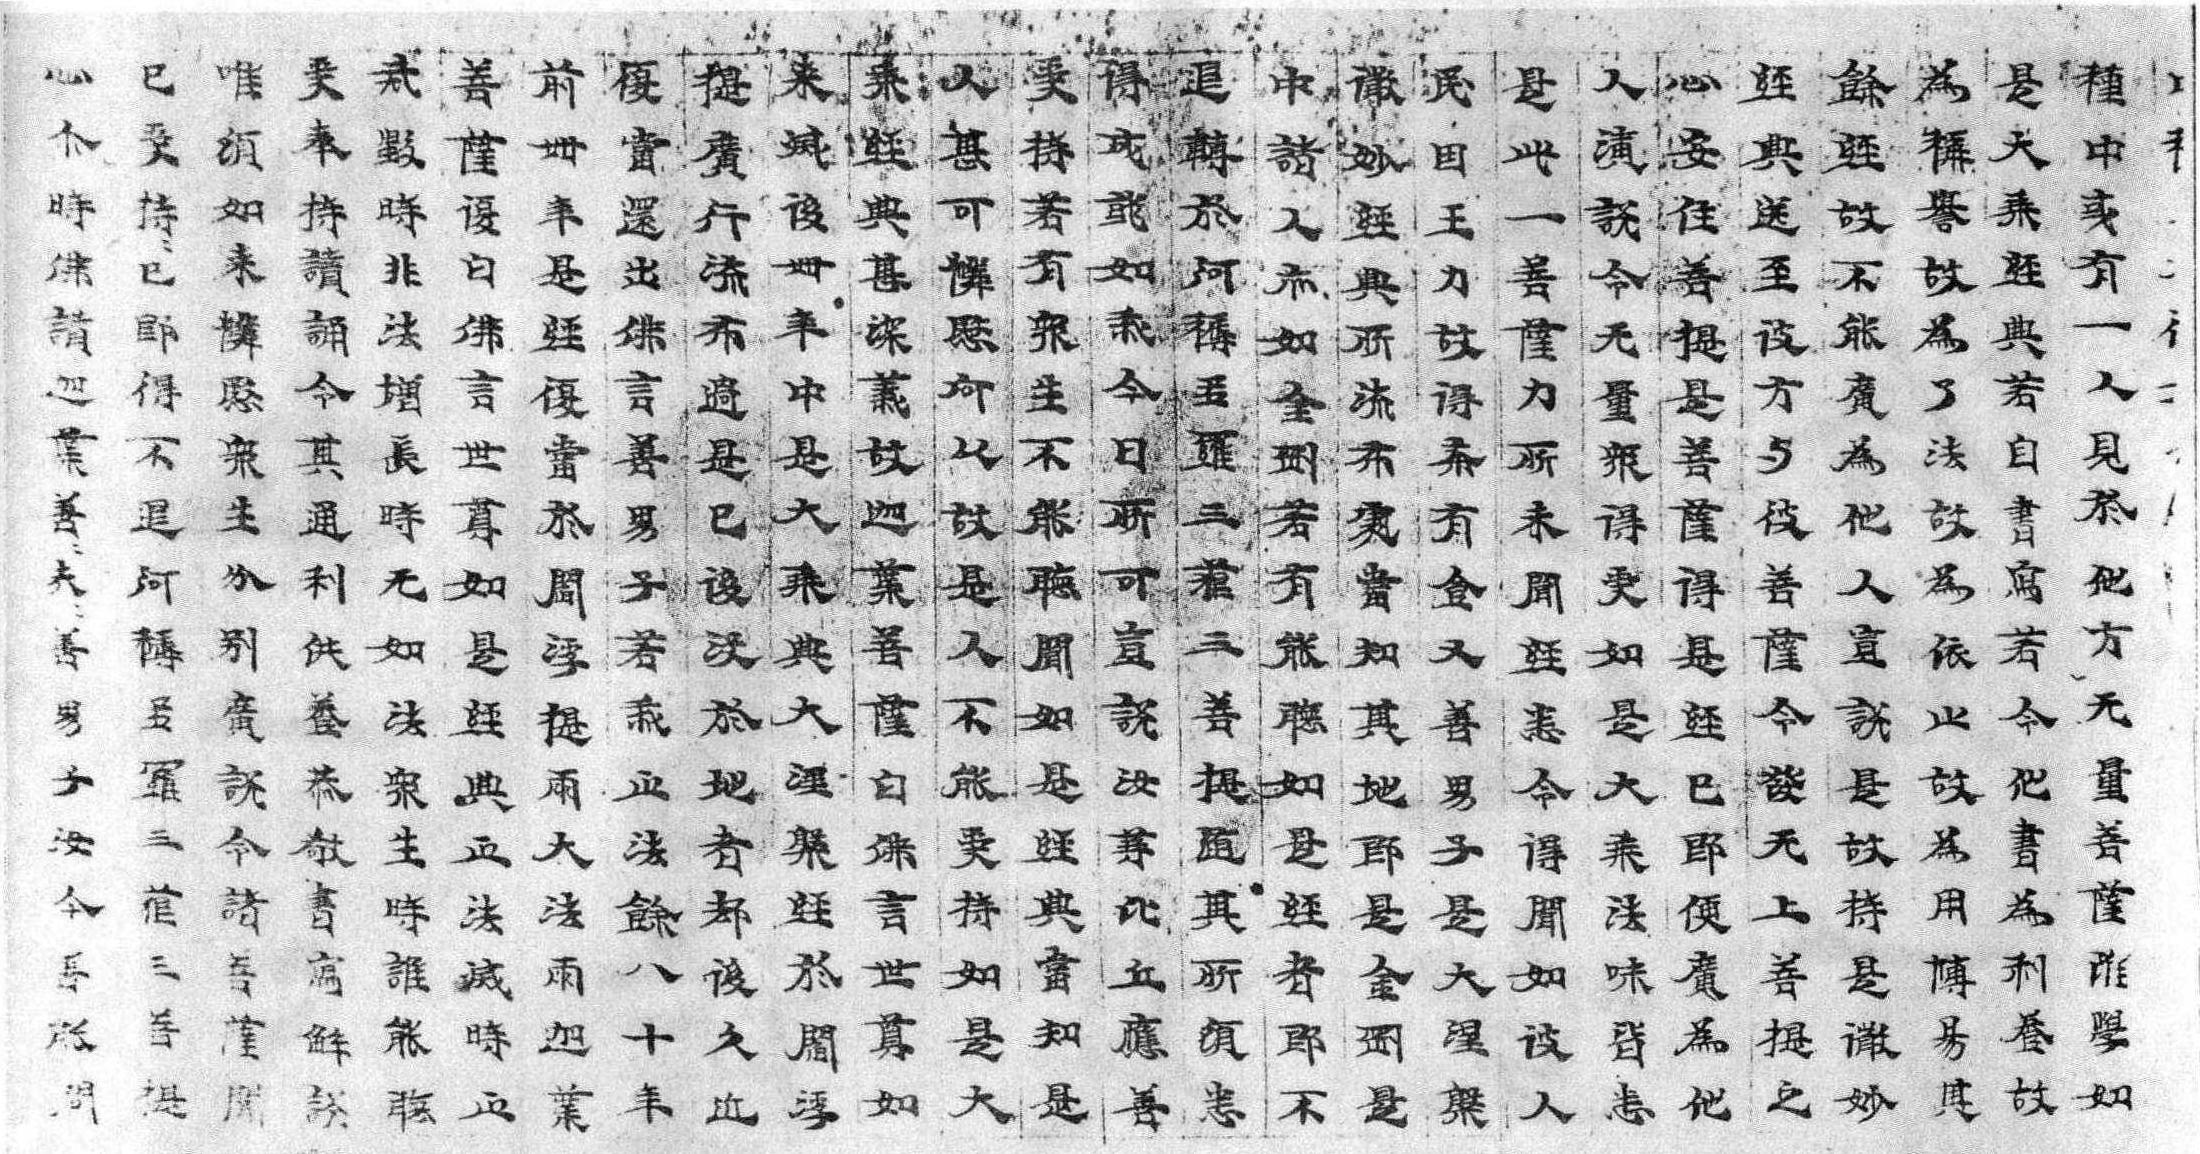 種中或有一人見於他方无量菩薩唯學如
是大乘經典若自書寫若令他書為利養故
為稱譽故為了法故為依止故為用博易其
餘經故不能廣為他人宣說是故持是微妙
經典送至彼方与彼菩薩令發无上菩提之
心安住菩提是菩薩得是經已即便廣為他
人演說令无量衆得受如是大乘法味皆悉
是此一菩薩力所未聞經悉令得聞如彼人
民因王力故得希有食又善男子是大涅槃
微妙經典所流布處當知其地即是金剛是
中諸人亦如金剛若有能聽如是經者即不
退轉於阿耨多羅三藐三菩提隨其所須悉
得成就如我今日所可宣說汝等比丘應善
受持若有衆生不能聽聞如是經典當知是
人甚可憐愍何以故是人不能受持如是大
乘經典甚深義故迦葉菩薩白佛言世尊如
来滅後卌年中是大乘典大涅槃經於閻浮
提廣行流布過是已後没於地者却後久近
復當還出佛言善男子若我正法餘八十年
前卌年是經復當於閻浮提雨大法雨迦葉
菩薩復白佛言世尊如是經典正法滅時正
戒毀時非法增長時无如法衆生時誰能聽
受奉持讀誦令其通利供養恭敬書寫解說
唯須如来憐愍衆生分別廣說令諸菩薩聞
已受持〻已即得不退阿耨多羅三藐三菩提
心尒時佛讃迦葉善〻哉〻善男子汝今善能問